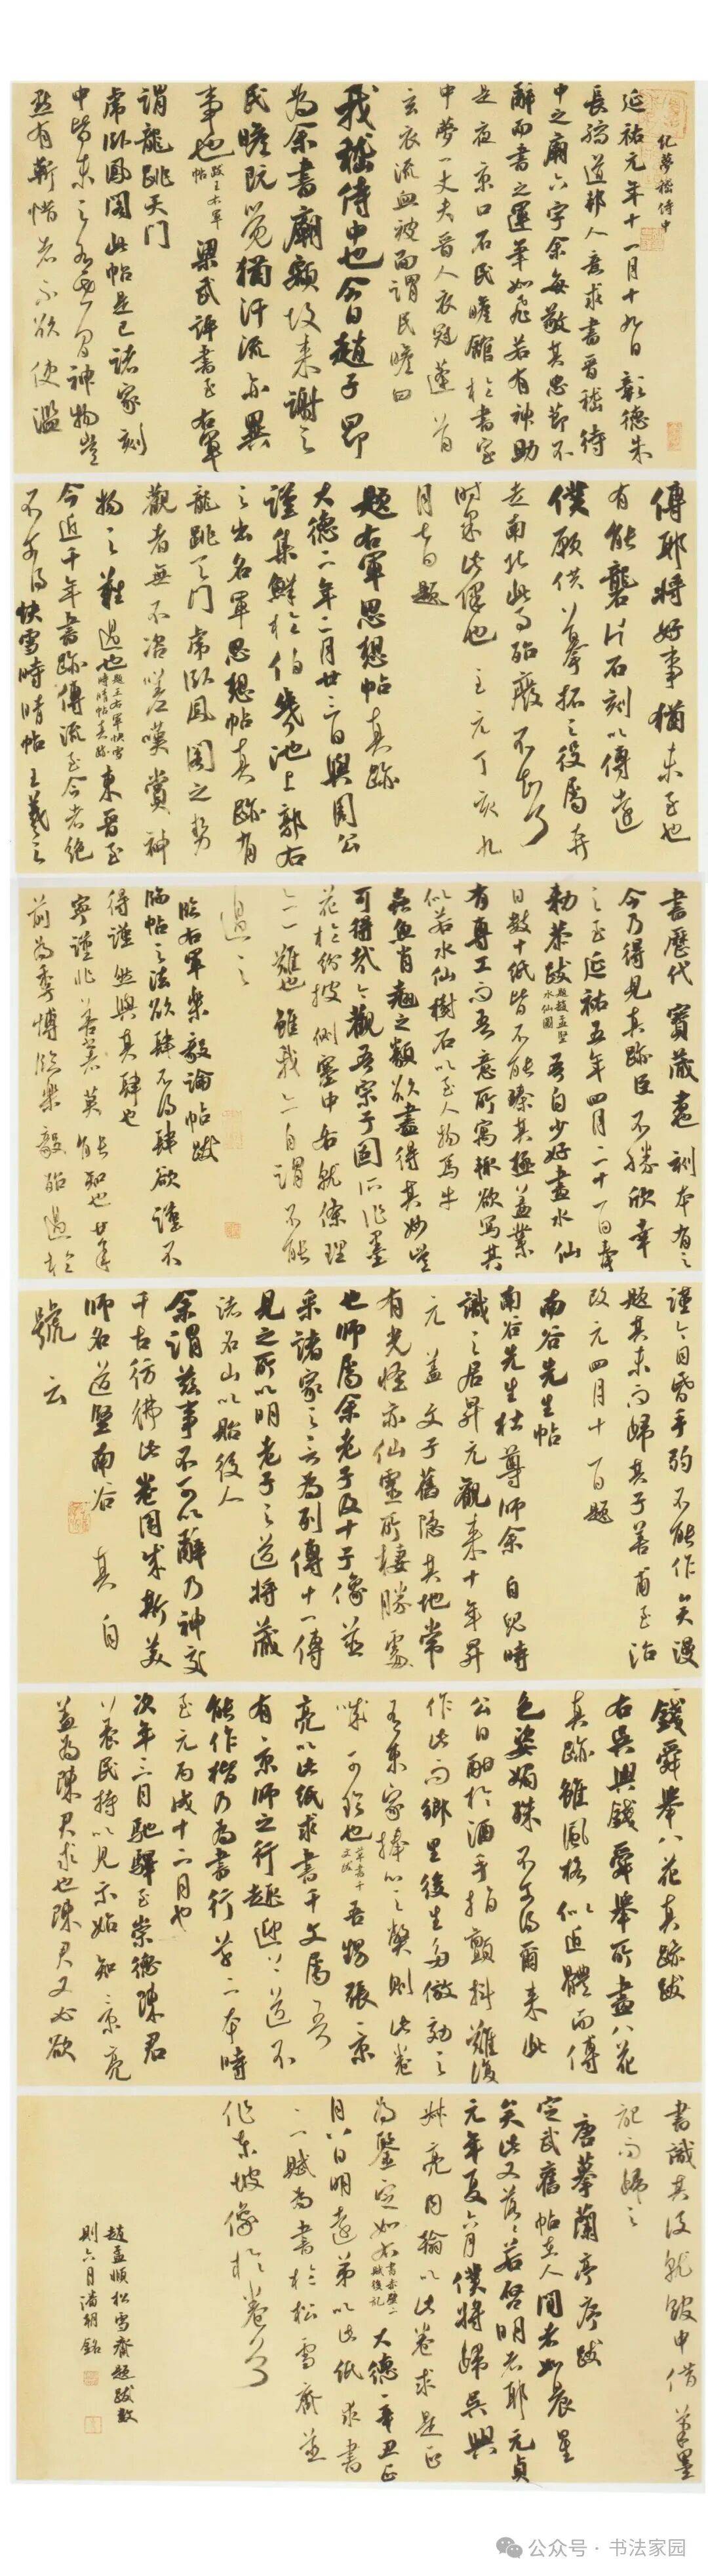 纪夢嵇侍中
延祐元年十一月十九日彰德朱
長孺道邦人意求書晋嵇侍
中之廟六字余每敬其忠節不
辭而書之運筆如飛若有神助
是夜京口石民瞻館於書室
中夢一丈夫晋人衣冠蓬首
玄衣流血被面謂民瞻曰
我嵇侍中也今日趙子昂
為余書廟額故来謝之
民瞻既覺猶汗流亦異
事也 跋王右軍帖 梁武評書至右軍
謂龍跳天门
虎卧鳳閣此帖是已諸家刻
中皆未之見
然有靳惜者不欲使滥
傳耶將好事猶未至也
有能礱片石刻以傳遠
僕願供摹拓之役
走南北此事殆廢不知
時果此僕也至元丁亥九
月七日題
題右軍思想帖真跡
大德二年二月廿三日與周公
謹集鮮于伯幾池上郭右
之出右軍思想帖真跡有
龍跳天门虎卧鳳閣之勢
觀者無不咨嗟嘆賞神
物之難遇也 題王右軍快雪時晴帖真跡 東晋至
今近千年書跡傳流至今者絶
不可得快雪時晴帖王羲之
書歷代寶藏者刻本有之
今乃得見真跡臣不勝欣幸
之至延祐五年四月二十一日奉
勅恭跋 題趙孟堅水仙圖 吾自少好畫水仙
日數十紙皆不能臻其極蓋業
有專工而吾意所寓輒欲寫其
似若水仙樹石以至人物馬牛
蟲魚肖翹之類欲盡得其妙豈
可得哉今觀吾宗子固所作墨
花於紛披側塞中各就條理
亦一難也雖我亦自謂不能
過之
臨右軍樂毅論帖跋
臨帖之法欲肆不得肆欲謹不
得謹然與其肆也
寧謹非善書者莫能知也廿年
前為季博臨樂毅殆過於
謹今目昏手弱不能作矣漫
題其末而歸其子善甫至治
改元四月十一日題
南谷先生帖
南谷先生杜尊師余自兒時
識之居昇元觀来十年昇
元蓋文子舊隱其地常
有光怪亦仙靈所棲勝處
也師属余老子及十子像並
采諸家之言為列傳十一傳
見之所以明老子之道將藏
诸名山以貽後人
余謂兹事不可以辭乃神交
千古彷彿此卷用成斯美
師名道堅南谷其自
號云
錢舜舉八花真跡跋
右吴興錢舜舉所畫八花
真跡雖風格似近體而傳
色姿媚殊不可得爾来此
公日酣於酒手指顫抖難復
作此而鄉里後生多倣効之
有東家捧心之弊則此卷
誠可珍也 吾甥張景
亮以此紙求書千文属吾
有京師之行趣迎不
能作楷乃為書行草二本時
至元丙戌十二月也
次年三月馳驛至崇德陳君
以養民持以見示始知景亮
蓋為陳君求也陳君又必欲
書識其後就館中借筆墨
記而歸之
唐摹蘭亭序跋
定武舊帖在人間者如晨星
矣此又落落若啓明者耶元貞
元年夏六月僕將歸吴興
叔亮内翰以此卷求是正
為鑒定如右 書赤壁二賦後記 大德辛丑正
月八日明遠弟以此紙求書
二賦為書於松雪齋並
作東坡像於卷首
趙孟頫松雪齋題跋数
则六月潘朝銘
公众号·书法家园